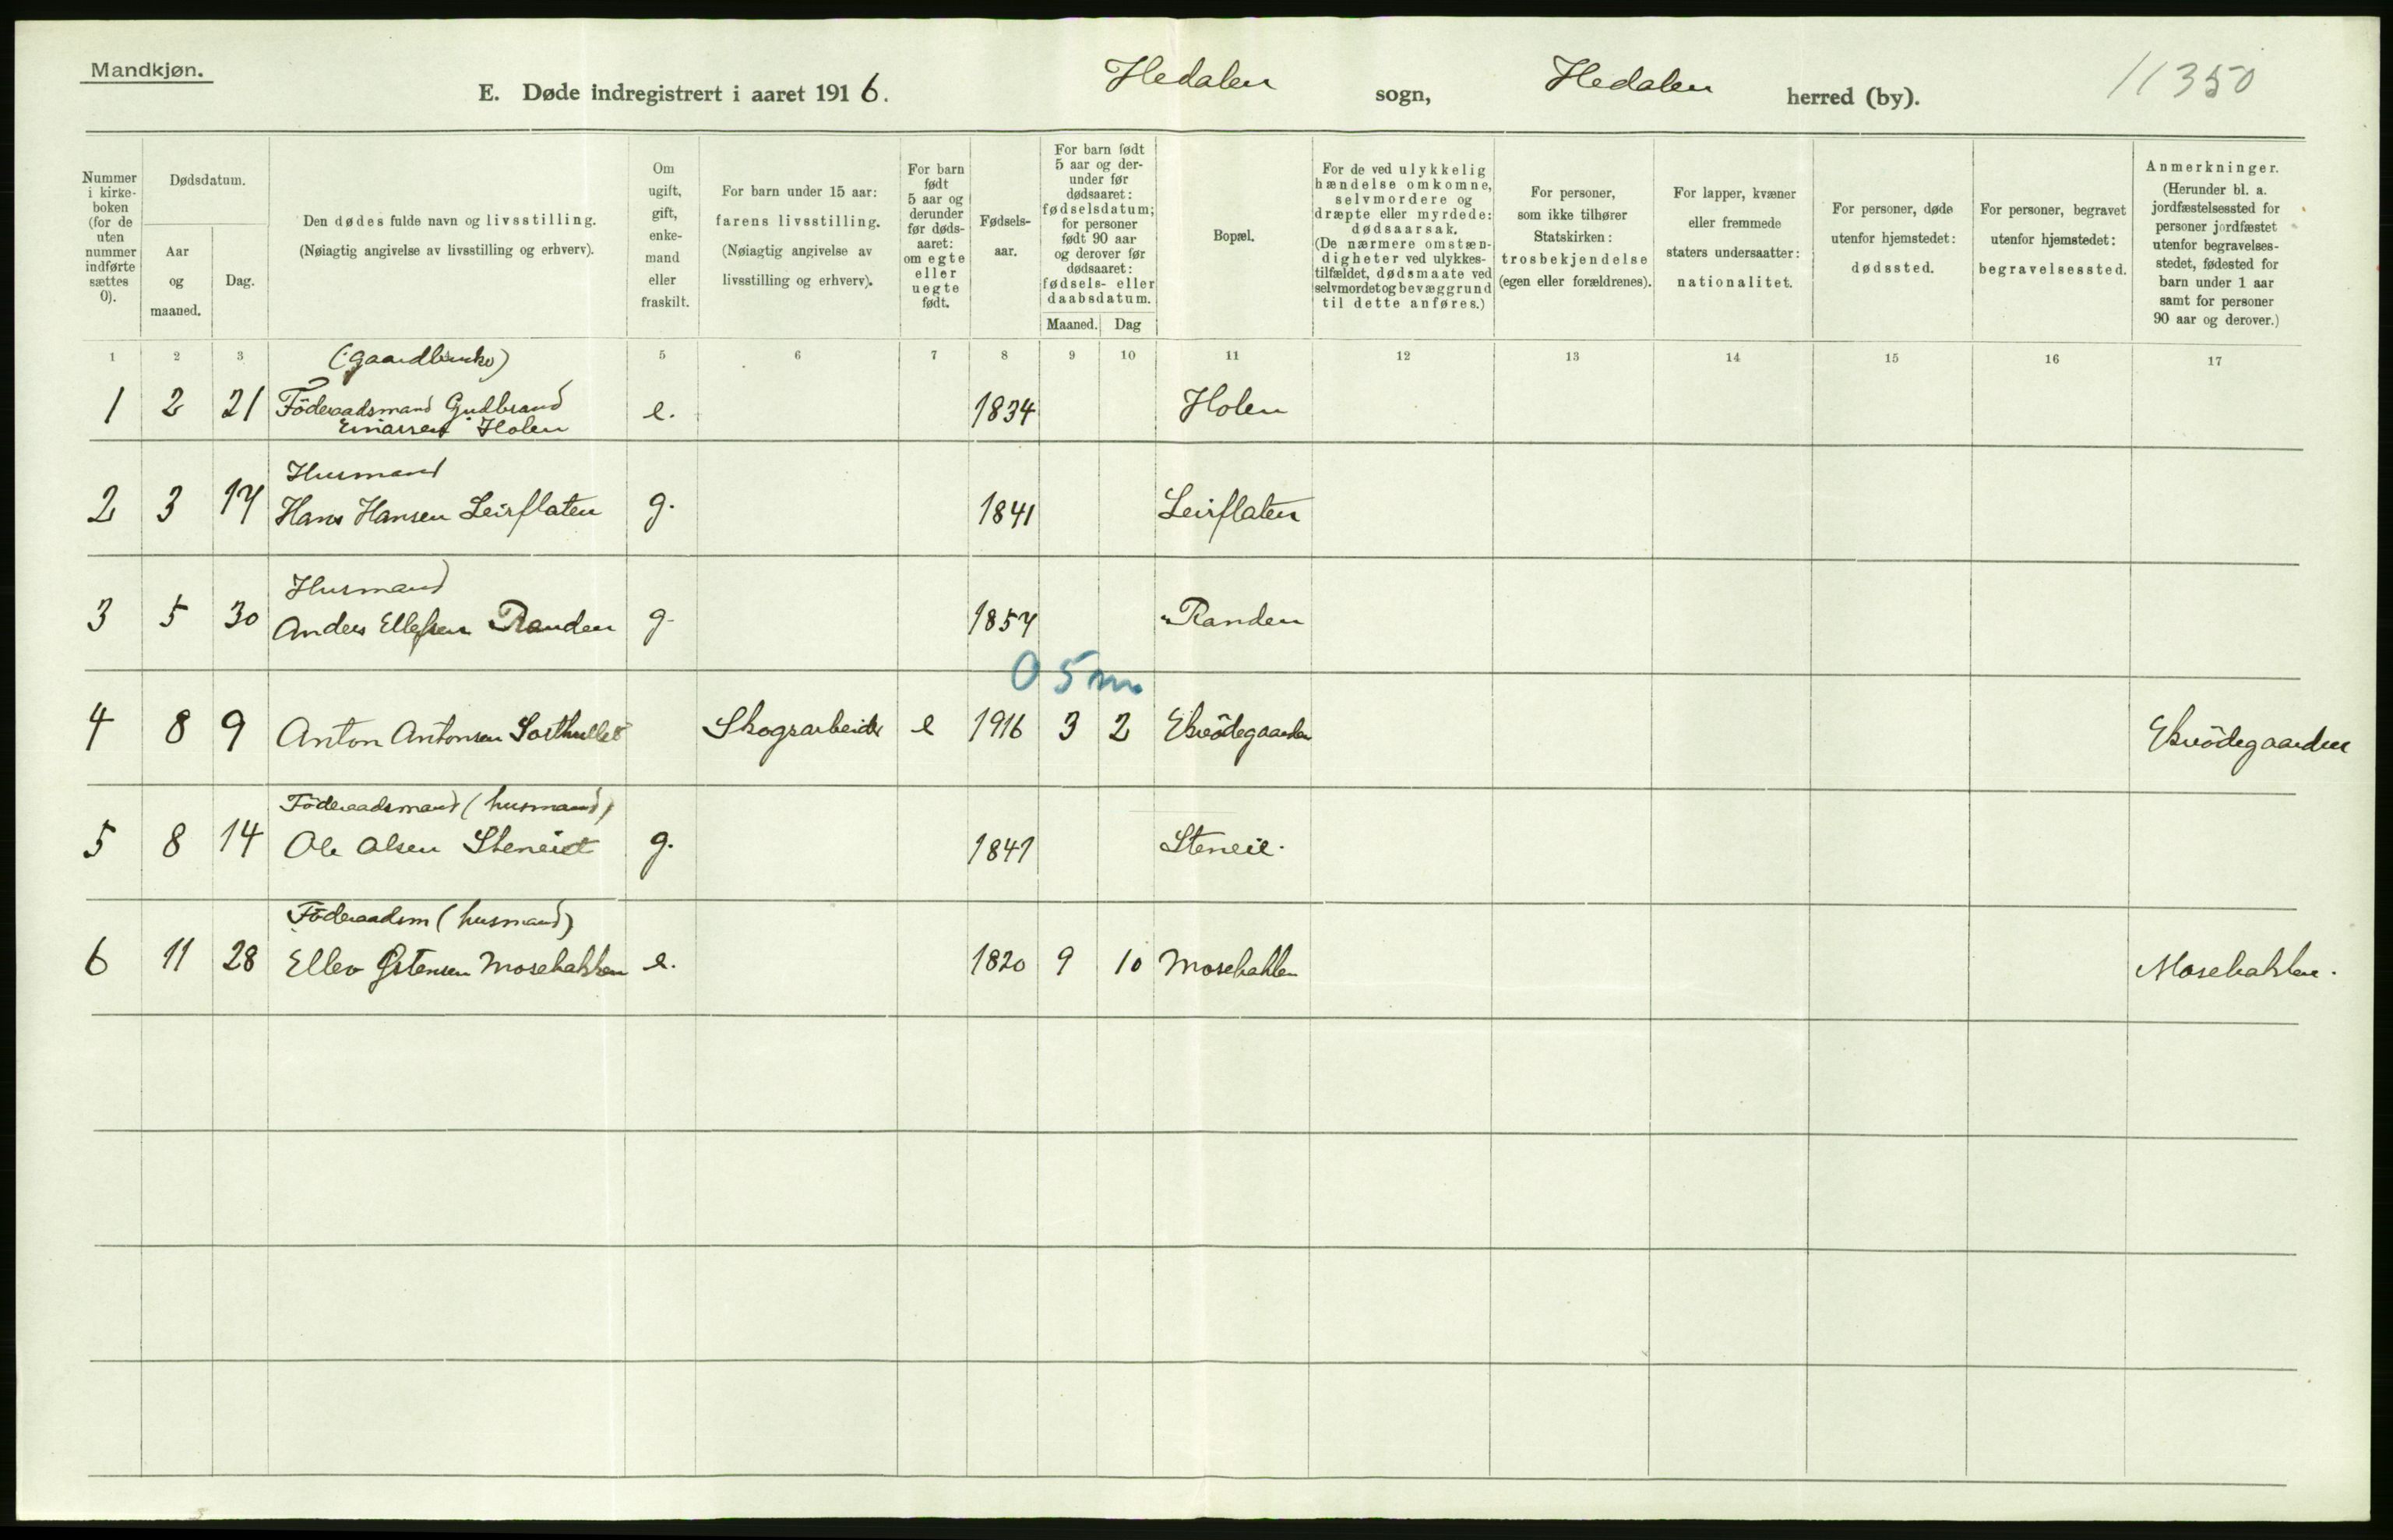 Mandkjøn.
E. Døde indregistrert i aaret 1916. Hedalen sogn, Hedalen herred (by). 11350
Nummer i kirke-
boken
(for de
uten
nummer
indførte
sættes
0).
Dødsdatum.
Aar
og
maaned.
Dag.
Den dødes fulde navn og livsstilling.
(Nøiagtig angivelse av livsstilling og erhverv).
Om
ugift,
gift,
enke-
mand
eller
fraskilt.
For barn under 15 aar:
farens livsstilling.
(Nøiagtig angivelse av
livsstilling og erhverv).
For barn
født
5 aar og
derunder
før døds-
aaret:
om egte
eller
uegte
født.
Fødsels-
aar.
For barn født
5 aar og der-
under før
dødsaaret:
fødselsdatum;
for personer
født 90 aar
og derover før
dødsaaret:
fødsels- eller
daabsdatum.
Maaned. Dag
Bopæl.
For de ved ulykkelig
hændelse omkomne,
selvmordere og
dræpte eller myrdede:
dødsaarsak.
(De nærmere omstæn-
digheter ved ulykkes-
tilfældet, dødsmaate ved
selvmordet og bevæggrund
til dette anføres.)
For personer,
som ikke tilhører
Statskirken:
trosbekjendelse
(egen eller forældrenes).
For lapper, kvæner
eller fremmede
staters undersaatter:
nationalitet.
For personer, døde
utenfor hjemstedet:
dødssted.
For personer, begravet
utenfor hjemstedet:
begravelsessted.
Anmerkninger.
(Herunder bl. a.
jordfæstelsessted for
personer jordfæstet
utenfor begravelses-
stedet, fødested for
barn under 1 aar
samt for personer
90 aar og derover.)
1 2 3 5 6 7 8 9 10 11 12 13 14 15 16 17
(gaardbruker)
1 2 21 Föderaadsmand Gudbrand e. 1834 Holen
Einarsen Holen
Husmand
2 3 17 Hans Hansen Leirflaten g. 1841 Leirflaten
Husmand
3 5 30 Anders Ellefsen Randen g. 1857 Randen
0 5 m.
4 8 9 Anton Antonsen Skogsarbeider e 1916 3 2
Föderaadsmand (husmand)
5 8 14 Ole Olsen Steneiet g. 1841 Steneie.
Föderaadsm (husmand)
6 11 28 Ellev Østensen Mosebakken e. 1820 9 10 Mosebakken Mosebakken.